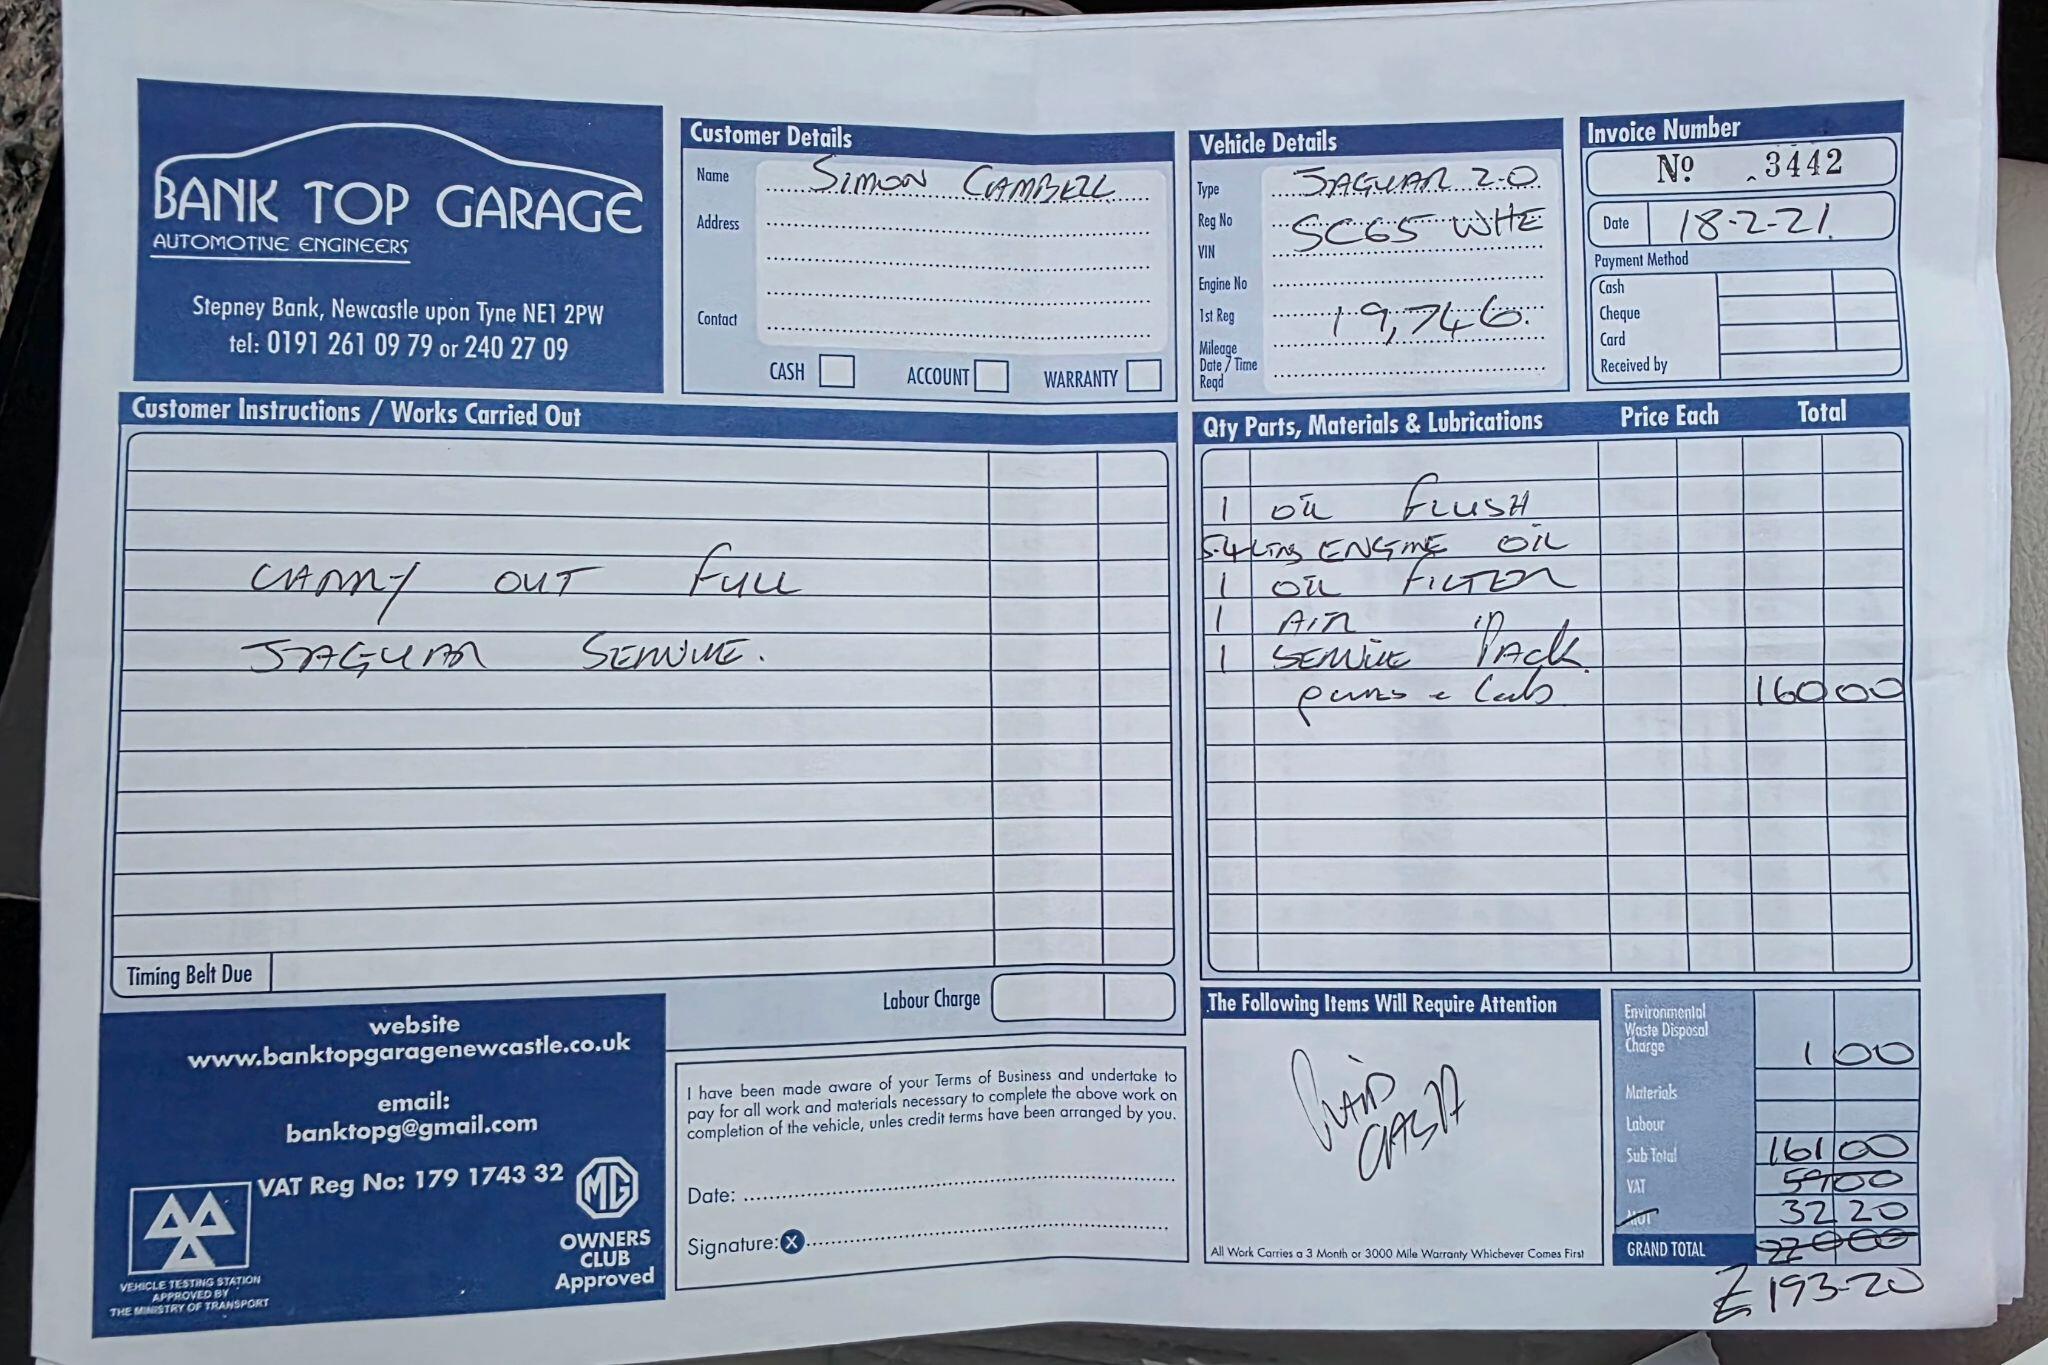 BANK TOP GARAGE
AUTOMOTIVE ENGINEERS
Stepney Bank, Newcastle upon Tyne NE1 2PW
tel: 0191 261 09 79 or 240 27 09
Customer Details
Name SIMON CAMBELL
Address
Contact
CASH ACCOUNT WARRANTY
Vehicle Details
Type JAGUAR 2.0
Reg No SC65 WHE
VIN
Engine No
1st Reg 19,746.
Mileage
Date / Time
Reqd
Invoice Number
No 3442
Date 18-2-21.
Payment Method
Cash
Cheque
Card
Received by
Customer Instructions / Works Carried Out
CARRY OUT FULL
JAGUAR SERVICE.
Timing Belt Due
Labour Charge
Qty Parts, Materials & Lubrications Price Each Total
1 OIL FLUSH
5.4 LTRS ENGINE OIL
1 OIL FILTER
1 AIR "
1 SERVICE PACK
PARTS & LAB 160 00
website
www.banktopgaragenewcastle.co.uk
email:
banktopg@gmail.com
VAT Reg No: 179 1743 32
VEHICLE TESTING STATION
APPROVED BY
THE MINISTRY OF TRANSPORT
MG
OWNERS
CLUB
Approved
I have been made aware of your Terms of Business and undertake to
pay for all work and materials necessary to complete the above work on
completion of the vehicle, unles credit terms have been arranged by you.
Date:
Signature: X
The Following Items Will Require Attention
PAID
CASH
All Work Carries a 3 Month or 3000 Mile Warranty Whichever Comes First
Environmental
Waste Disposal
Charge 1 00
Materials
Labour
Sub Total 161 00
VAT 59 00
MOT 32 20
GRAND TOTAL 220 00
£193-20